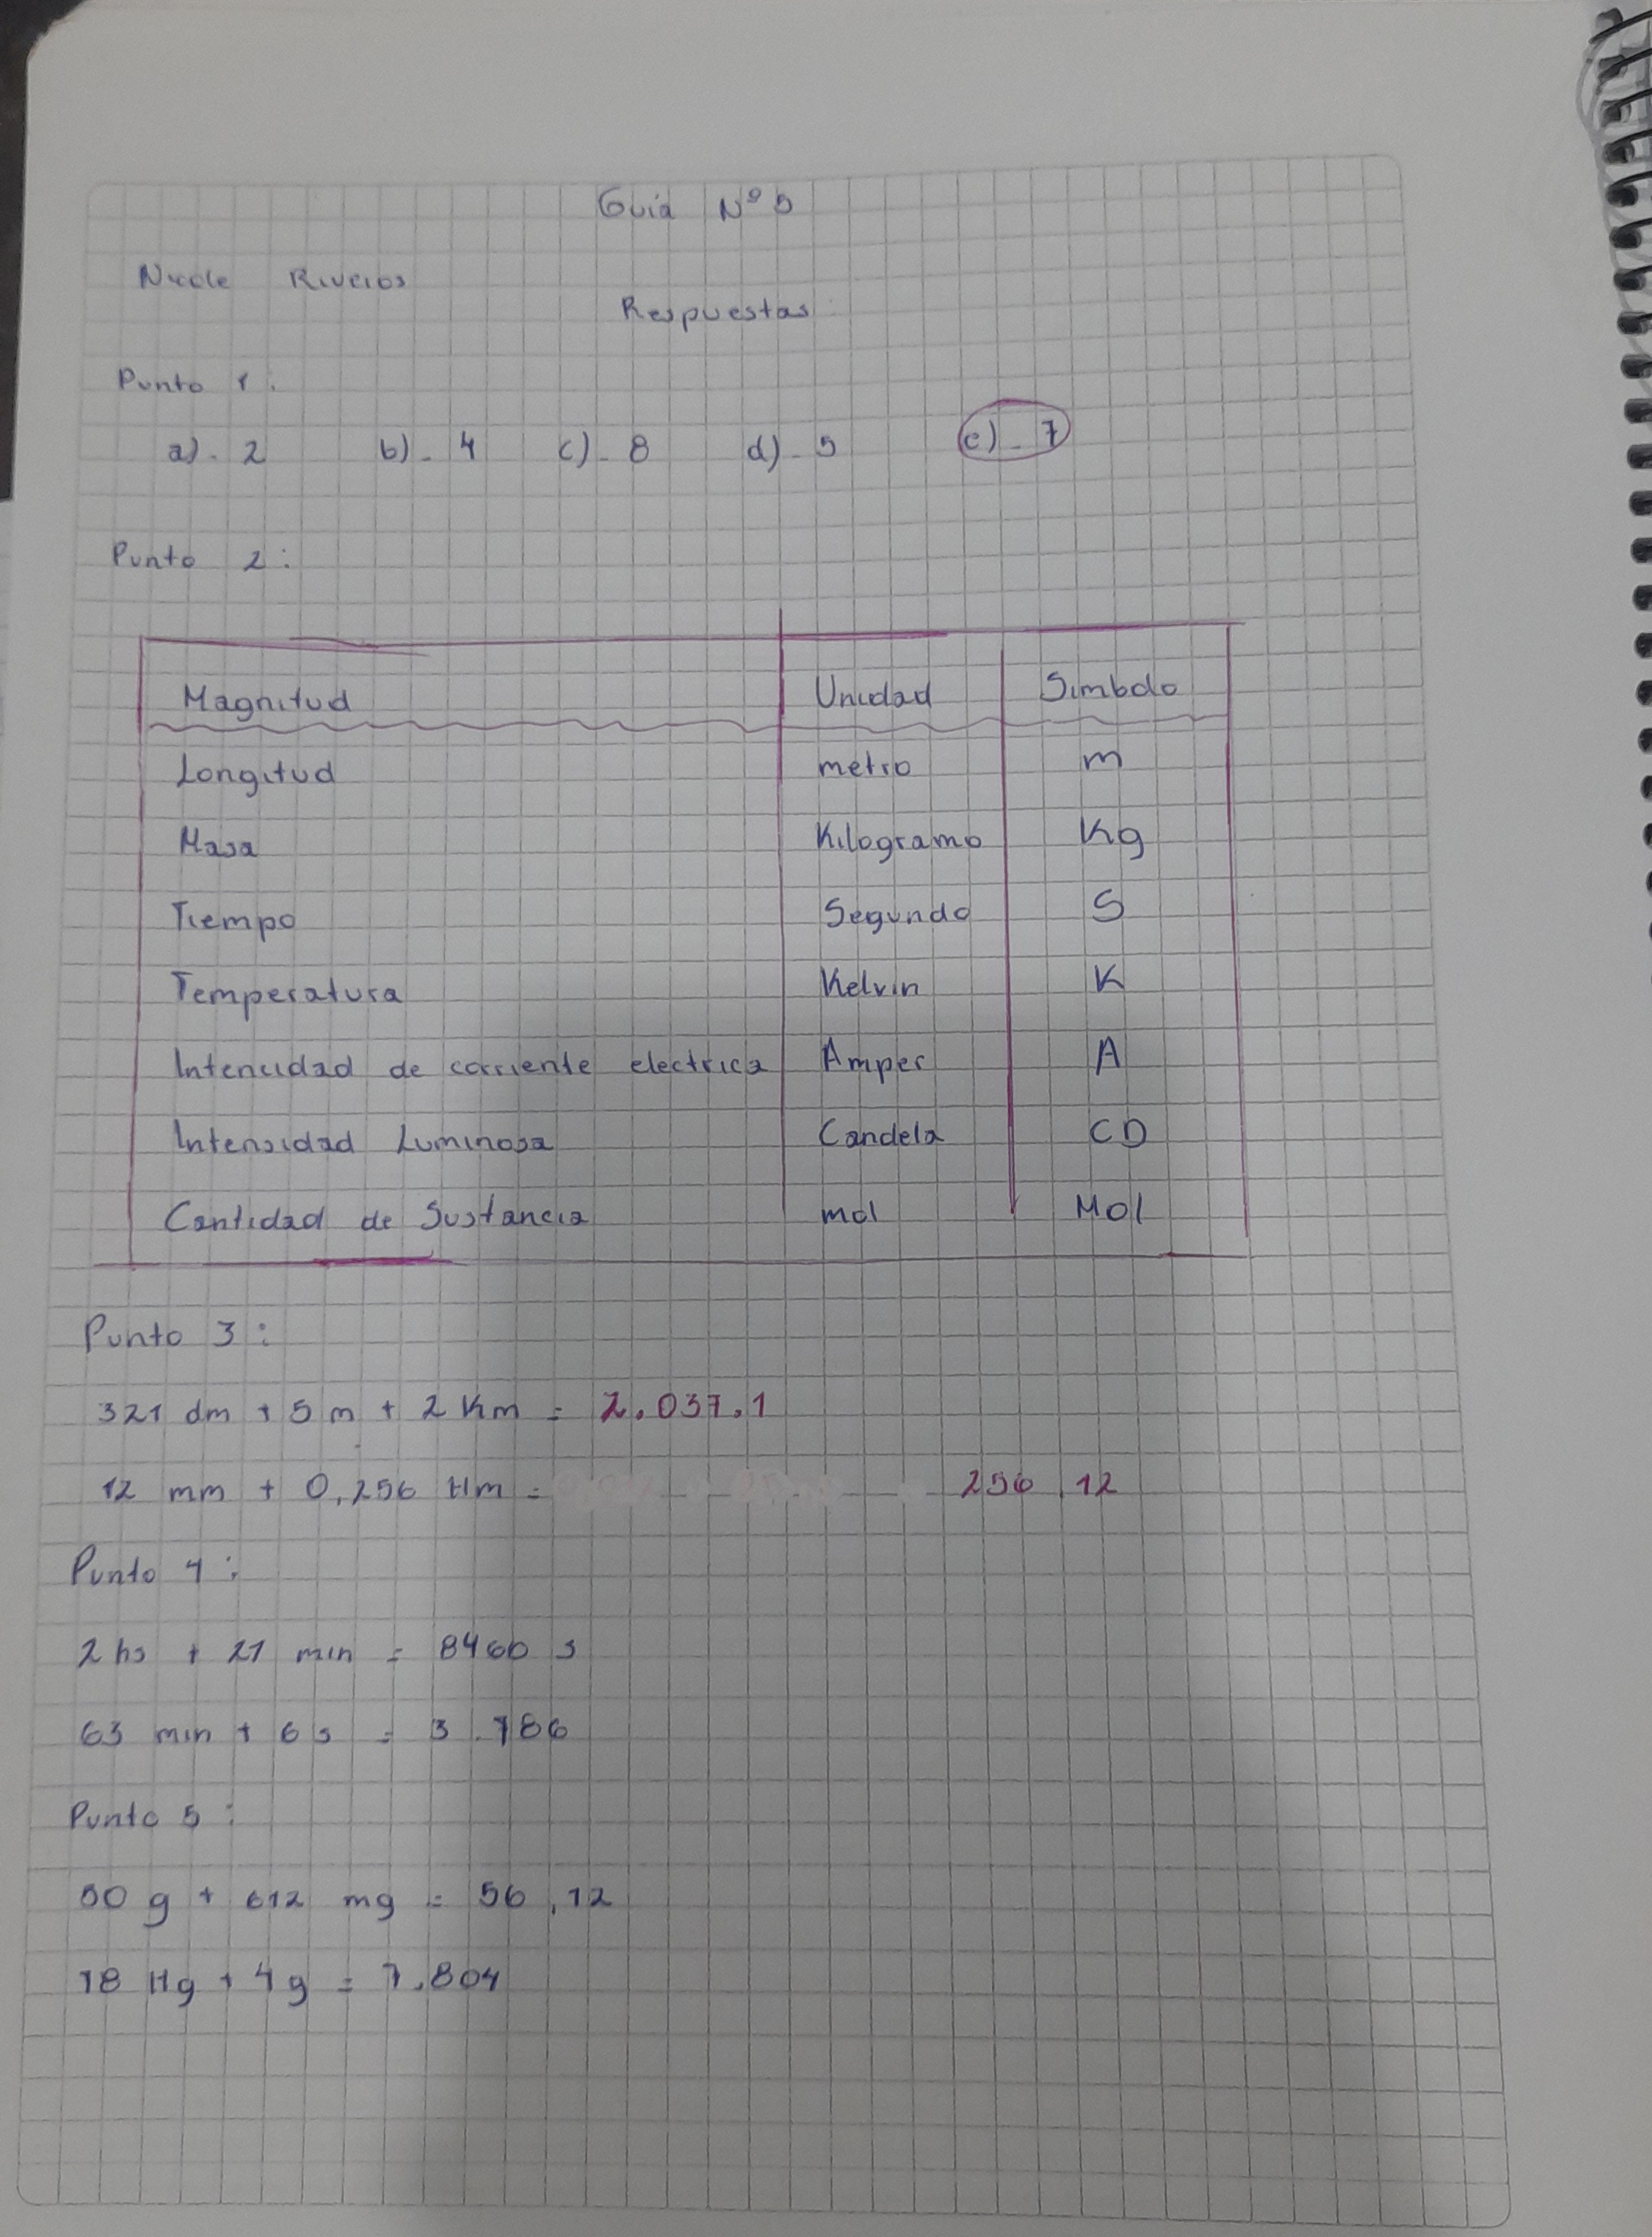 Guia Nº 5
Nicole Riveros
Respuestas:
Punto 1.
a)- 2 b)- 4 c)- 8 d)- 5 e)- 7
Punto 2:
Magnitud Unidad Simbolo
Longitud metro m
Masa Kilogramo Kg
Tiempo Segundo S
Temperatura Kelvin K
Intencidad de corriente electrica Amper A
Intensidad Luminosa Candela CD
Cantidad de Sustancia mol Mol
Punto 3:
321 dm + 5 m + 2 Km = 2.037.1
12 mm + 0,256 Hm = 256,12
Punto 4:
2 hs + 21 min = 8460 s
63 min + 6 s = 3.786
Punto 5:
50 g + 612 mg = 56,12
18 Hg + 4 g = 1.804